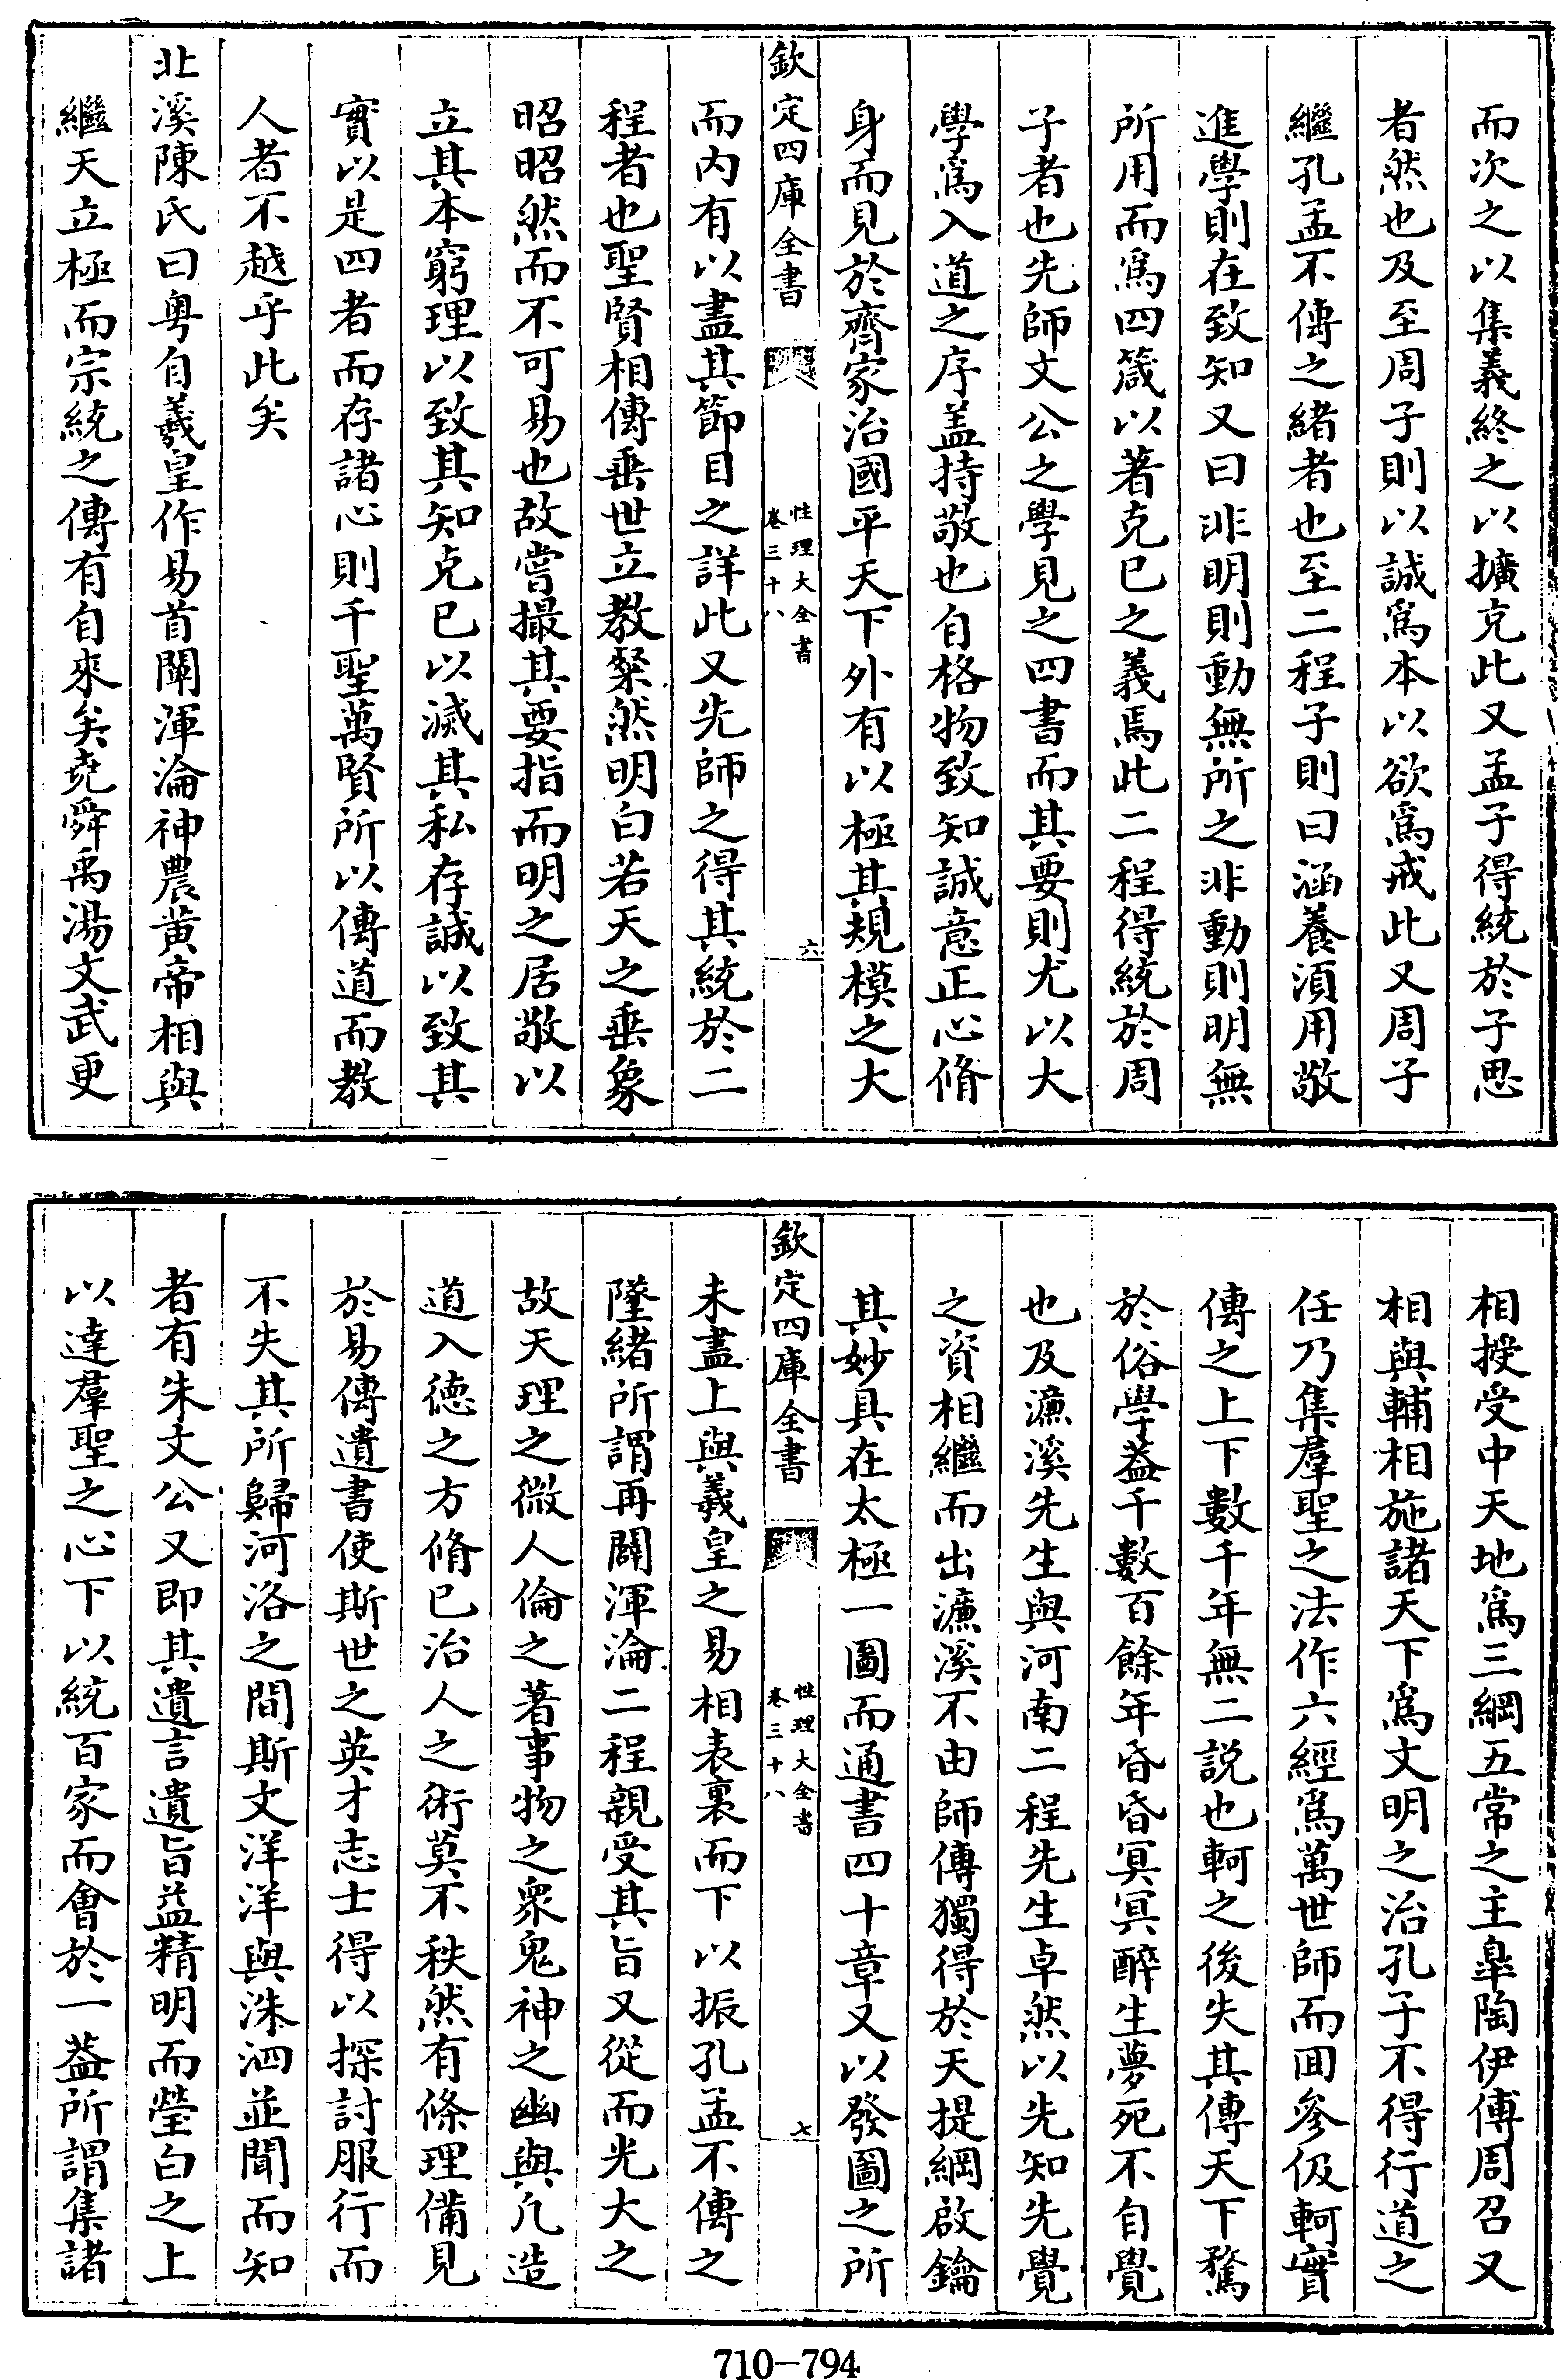 而次之以集義終之以擴克此又孟子得統於子思
者然也及至周子則以誠爲本以欲爲戒此又周子
繼孔孟不傳之緒者也至二程子則曰涵養湏用敬
進學則在致知又曰非明則動無所之非動則明無
所用而爲四箴以著克已之義焉此二程得統於周
子者也先師文公之學見之四書而其要則尤以大
學爲入道之序盖持敬也自格物致知誠意正心脩
身而見於齊家治國平天下外有以極其規模之大
欽定四庫全書
性理大全書
卷三十八
六
而内有以盡其節目之詳此又先師之得其統於二
程者也聖賢相傳垂世立教粲然明白若天之垂象
昭昭然而不可易也故嘗撮其要指而明之居敬以
立其本窮理以致其知克已以滅其私存誠以致其
實以是四者而存諸心則千聖萬賢所以傳道而教
人者不越乎此矣
北溪陳氏曰粤自羲皇作易首闡渾淪神農黄帝相與
繼天立極而宗統之傳有自來矣堯舜禹湯文武更
相授受中天地爲三綱五常之主臯陶伊傅周召又
相與輔相施諸天下爲文明之治孔子不得行道之
任乃集羣聖之法作六經爲萬世師而囬參伋軻實
傳之上下數千年無二説也軻之後失其傳天下騖
於俗學葢千數百餘年昏昏冥冥醉生夢死不自覺
也及濂溪先生與河南二程先生卓然以先知先覺
之資相繼而出濂溪不由師傳獨得於天提綱啟鑰
其妙具在太極一圖而通書四十章又以發圖之所
欽定四庫全書
性理大全書
卷三十八
七
未盡上與羲皇之易相表裏而下以振孔孟不傳之
墜緒所謂再闢渾淪二程親受其旨又從而光大之
故天理之微人倫之著事物之衆鬼神之幽與凡造
道入德之方脩已治人之術莫不秩然有條理備見
於易傳遺書使斯世之英才志士得以探討服行而
不失其所歸河洛之間斯文洋洋與洙泗並聞而知
者有朱文公又即其遺言遺旨益精明而瑩白之上
以達羣聖之心下以統百家而會於一葢所謂集諸
710-794